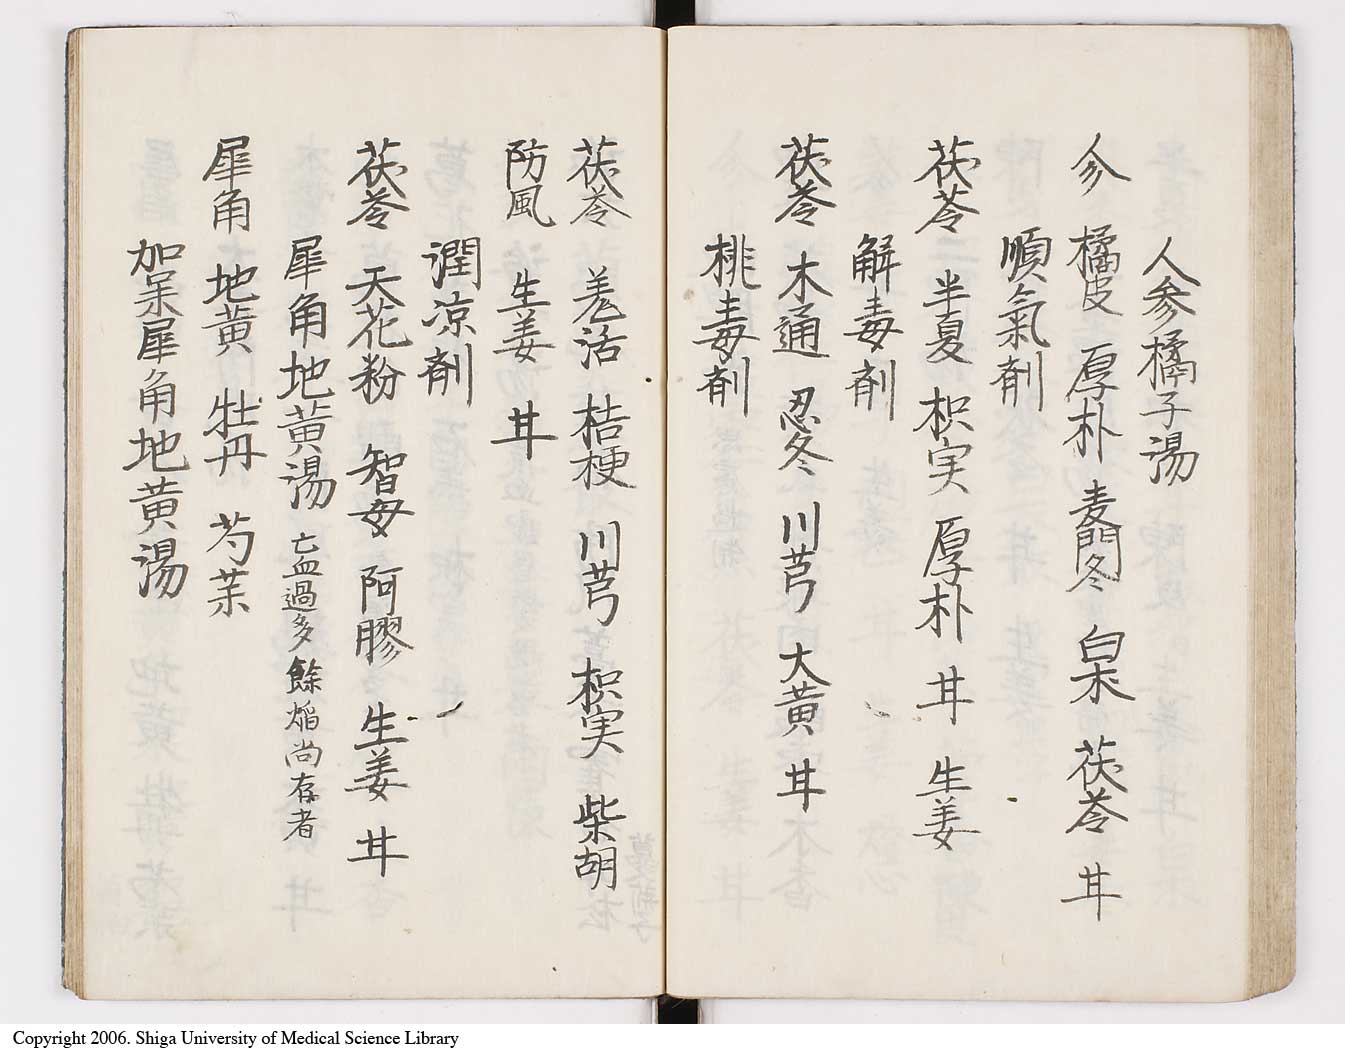 人参橘子湯
参 橘皮 厚朴 麦門冬 白朮 茯苓 甘
順氣剤
茯苓 半夏 枳実 厚朴 甘 生姜
解毒剤
茯苓 木通 忍冬 川芎 大黄 甘
桃毒剤
茯苓 羌活 桔梗 川芎 枳実 柴胡
防風 生姜 甘
潤凉剤
茯苓 天花粉 智母 阿膠 生姜 甘
犀角地黄湯 亡血過多餘焔尚存者
犀角 地黄 牡丹 芍薬
加味犀角地黄湯
Copyright 2006. Shiga University of Medical Science Library